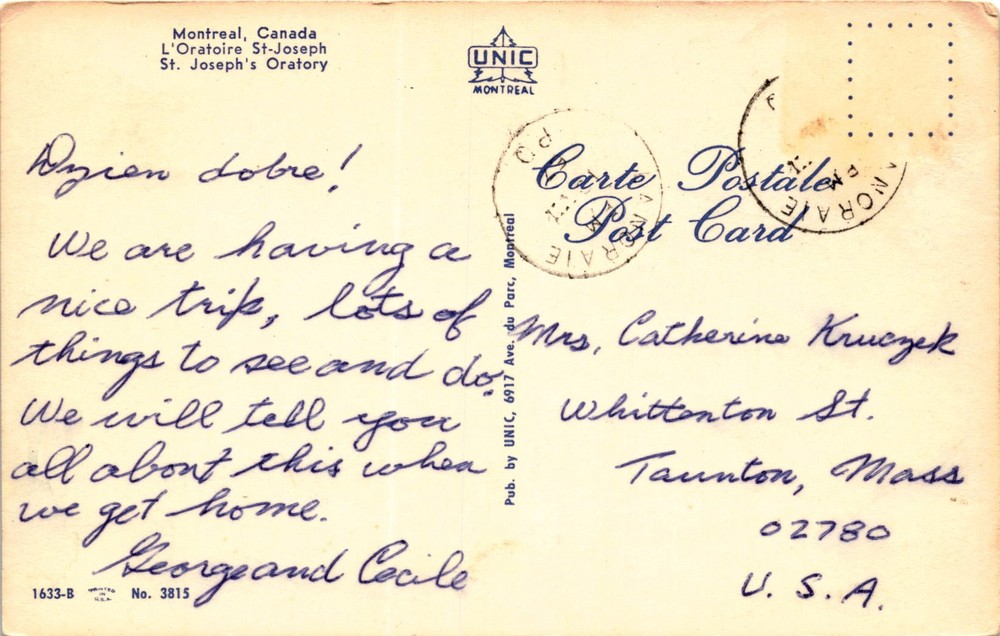 Montreal, Canada
L'Oratoire St-Joseph
St. Joseph's Oratory
UNIC
MONTREAL
Carte Postale
Post Card
PQ
PM
ANORAIE
ANORAIE
Dzien dobre!
We are having a
nice trip, lots of
things to see and do.
We will tell you
all about this when
we get home.
George and Cecile
Pub. by UNIC, 6917 Ave. du Parc, Montreal
Mrs, Catherine Kruczek
Whittenton St.
Taunton, Mass
02780
U. S. A.
1633-B PRINTED IN U.S.A. No. 3815